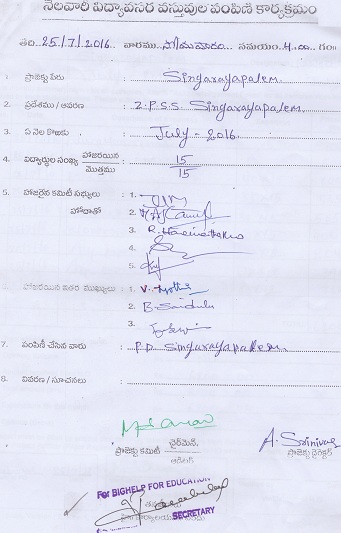 నెలవారీ విద్యావసర వస్తువుల పంపిణీ కార్యక్రమం
తేది 25/7/2016 వారము సోమవారం సమయం 4.00 గం॥
1. ప్రాజెక్టు పేరు : Singarayapalem
2. ప్రదేశము / ఆవరణ : Z.P.S.S. Singarayapalem.
3. ఏ నెల కొఱకు : July - 2016
4. విద్యార్థుల సంఖ్య హాజరయిన / మొత్తము : 15 / 15
5. హాజరైన కమిటీ సభ్యులు : 1.
హోదాతో 2.
3.
4.
5.
6. హాజరయిన ఇతర ముఖ్యులు : 1. V. Jyothi
2. B. Saidulu
3.
7. పంపిణీ చేసిన వారు : P.D. Singarayapalem
8. వివరణ / సూచనలు :
ప్రాజెక్టు కమిటీ ఛైర్మెన్,
ఆడిటర్
A. Srinivas
ప్రాజెక్టు డైరెక్టర్
For BIGHELP FOR EDUCATION
SECRETARY